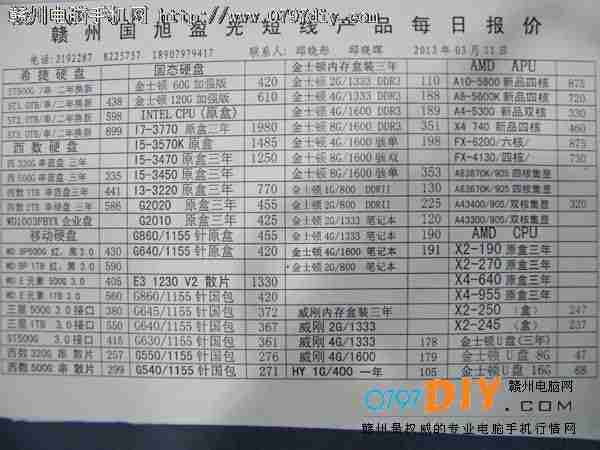 赣州电脑手机网 http://www.0797diy.com
赣州国旭盈光短线产品每日报价
电话:2192287 8225757 18907979417 联系人: 邱晓彤 邱晓晖 2013年03月11日
希捷硬盘 国态硬盘 金士顿内存盒装三年 AMD APU
ST500G/串/二年换新 金士顿 60G 加强版 420 金士顿 2G/1333 DDR3 110 A10-5800 新品四核 875
438 金士顿 120G 加强版 610 金士顿 4G/1333 DDR3 188 A8-5600K 新品四核 720
598 INTEL CPU (原盒) 金士顿 4G/1600 DDR3 189 A4-5300 新品双核 330
899 I7-3770 原盒三年 1980 金士顿 8G/1600 DDR3 351 X4 740 新品四核 460
西数硬盘 I5-3570K 原盒 1485 金士顿 4G/1600 骇单 FX-6200/六核/ 875
西 320G 串 蓝盘 三年 I5-3470 原盒三年 1250 金士顿 8G/1600 骇双 FX-4130/四核/ 730
西 500G 串 蓝盘 三年 235 I5-3450 原盒三年 金士顿 8G/1600 骇单 353
西数 1TB 串 蓝盘 三年 441 I3-3220 原盒三年 770 金士顿 1G/800 DDRII 130 320
西数 2TB 串 绿盘 三年 586 G2020 原盒三年 455 金士顿 2G/800 DDRII 225 A43400/905/双核集显 320
WD1003FBYX 企业盘 G2010 原盒三年 425 金士顿 2G/1333 笔记本 120 A43300/905/双核集显
移动硬盘 G860/1155 针原盒 455 金士顿 4G/1333 笔记本 190 AMD CPU
430 G640/1155 针原盒 420 金士顿 4G/1600 笔记本 191 X2-190 原盒三年
590 金士顿 2G/800 笔记本 X2-270 原盒三年
WD E 元素 500G 3.0 405 E3 1230 V2 散片 1330 X4-640 原盒三年
WD E 元素 1TB 3.0 560 G860/1155 针国包 420 X4-955 原盒三年
三星 500G 3.0 接口 380 G645/1155 针国包 372 威刚内存盒装三年 X2-250 (盒) 247
三星 1TB 3.0 接口 550 G640/1155 针国包 367 威刚 2G/1333 X2-245 (盒) 237
ST500G 3.0 接口 415 G630/1155 针国包 361 威刚 4G/1333 178 金士顿U盘(三年)
西数 320G 串 散片 257 G550/1155 针国包 276 威刚 4G/1600 179 金士顿 U盘 8G 47
西数 500G 串 散片 299 G540/1155 针国包 271 HY 1G/400 一年 105 金士顿 U盘 16G 68
0797DIY.com 赣州电脑网
赣州最权威的专业电脑手机行情网